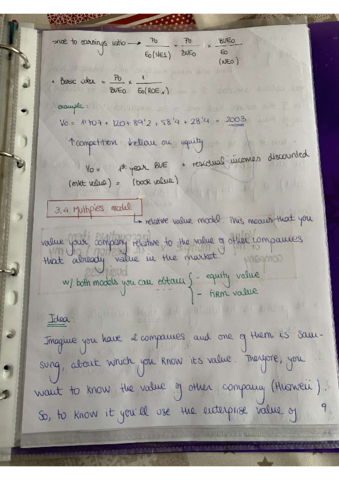 price to earnings ratio → P₀ / E₀(NE1) = P₀ / BVE₀ × BVE₀ / E₀(NE0)
• Basic idea = P₀ / BVE₀ × 1 / E₀(ROE₁)
example:
V₀ = 1'707 + 120 + 89'2 + 58'4 + 28'4 = 2003
↑ competition → return on equity
V₀ = 1st year BVE + residual incomes discounted
(mkt value) = (book value)
3.4. Multiples model
→ relative value model. This means that you
value your company relative to the value of other companies
that already value in the market.
w/ both models you can obtain { - equity value
- firm value
Idea:
Imagine you have 2 companies and one of them is Sam-
sung, about which you know its value. Therefore, you
want to know the value of other company (Huawei).
So, to know it you'll use the enterprise value of
9